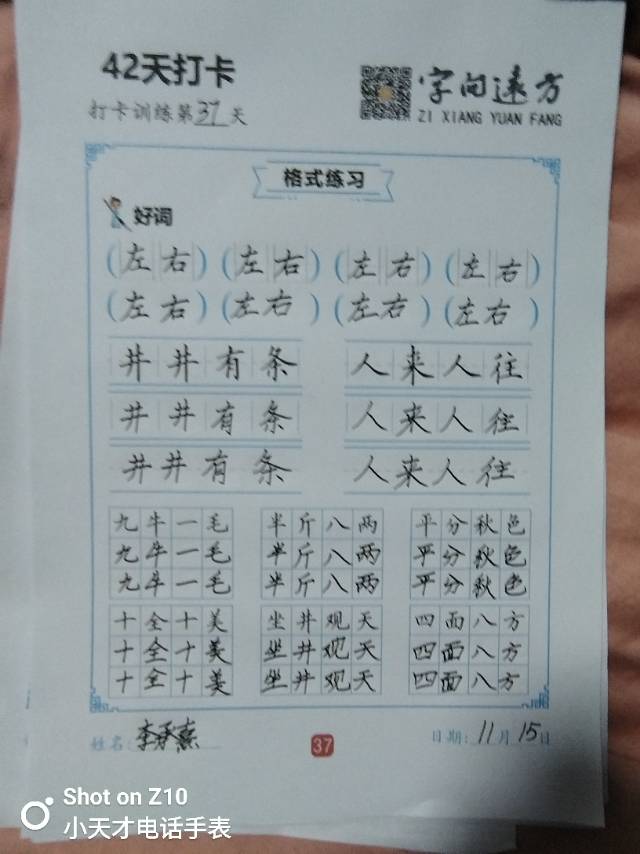 42天打卡
打卡训练第37天
字向远方
ZI XIANG YUAN FANG
格式练习
好词
(左右) (左右) (左右) (左右)
(左右) (左右) (左右) (左右)
井井有条 人来人往
井井有条 人来人往
井井有条 人来人往
九牛一毛 半斤八两 平分秋色
九牛一毛 半斤八两 平分秋色
九牛一毛 半斤八两 平分秋色
十全十美 坐井观天 四面八方
十全十美 坐井观天 四面八方
十全十美 坐井观天 四面八方
姓名:李承熹 37 日期:11月15日
Shot on Z10
小天才电话手表